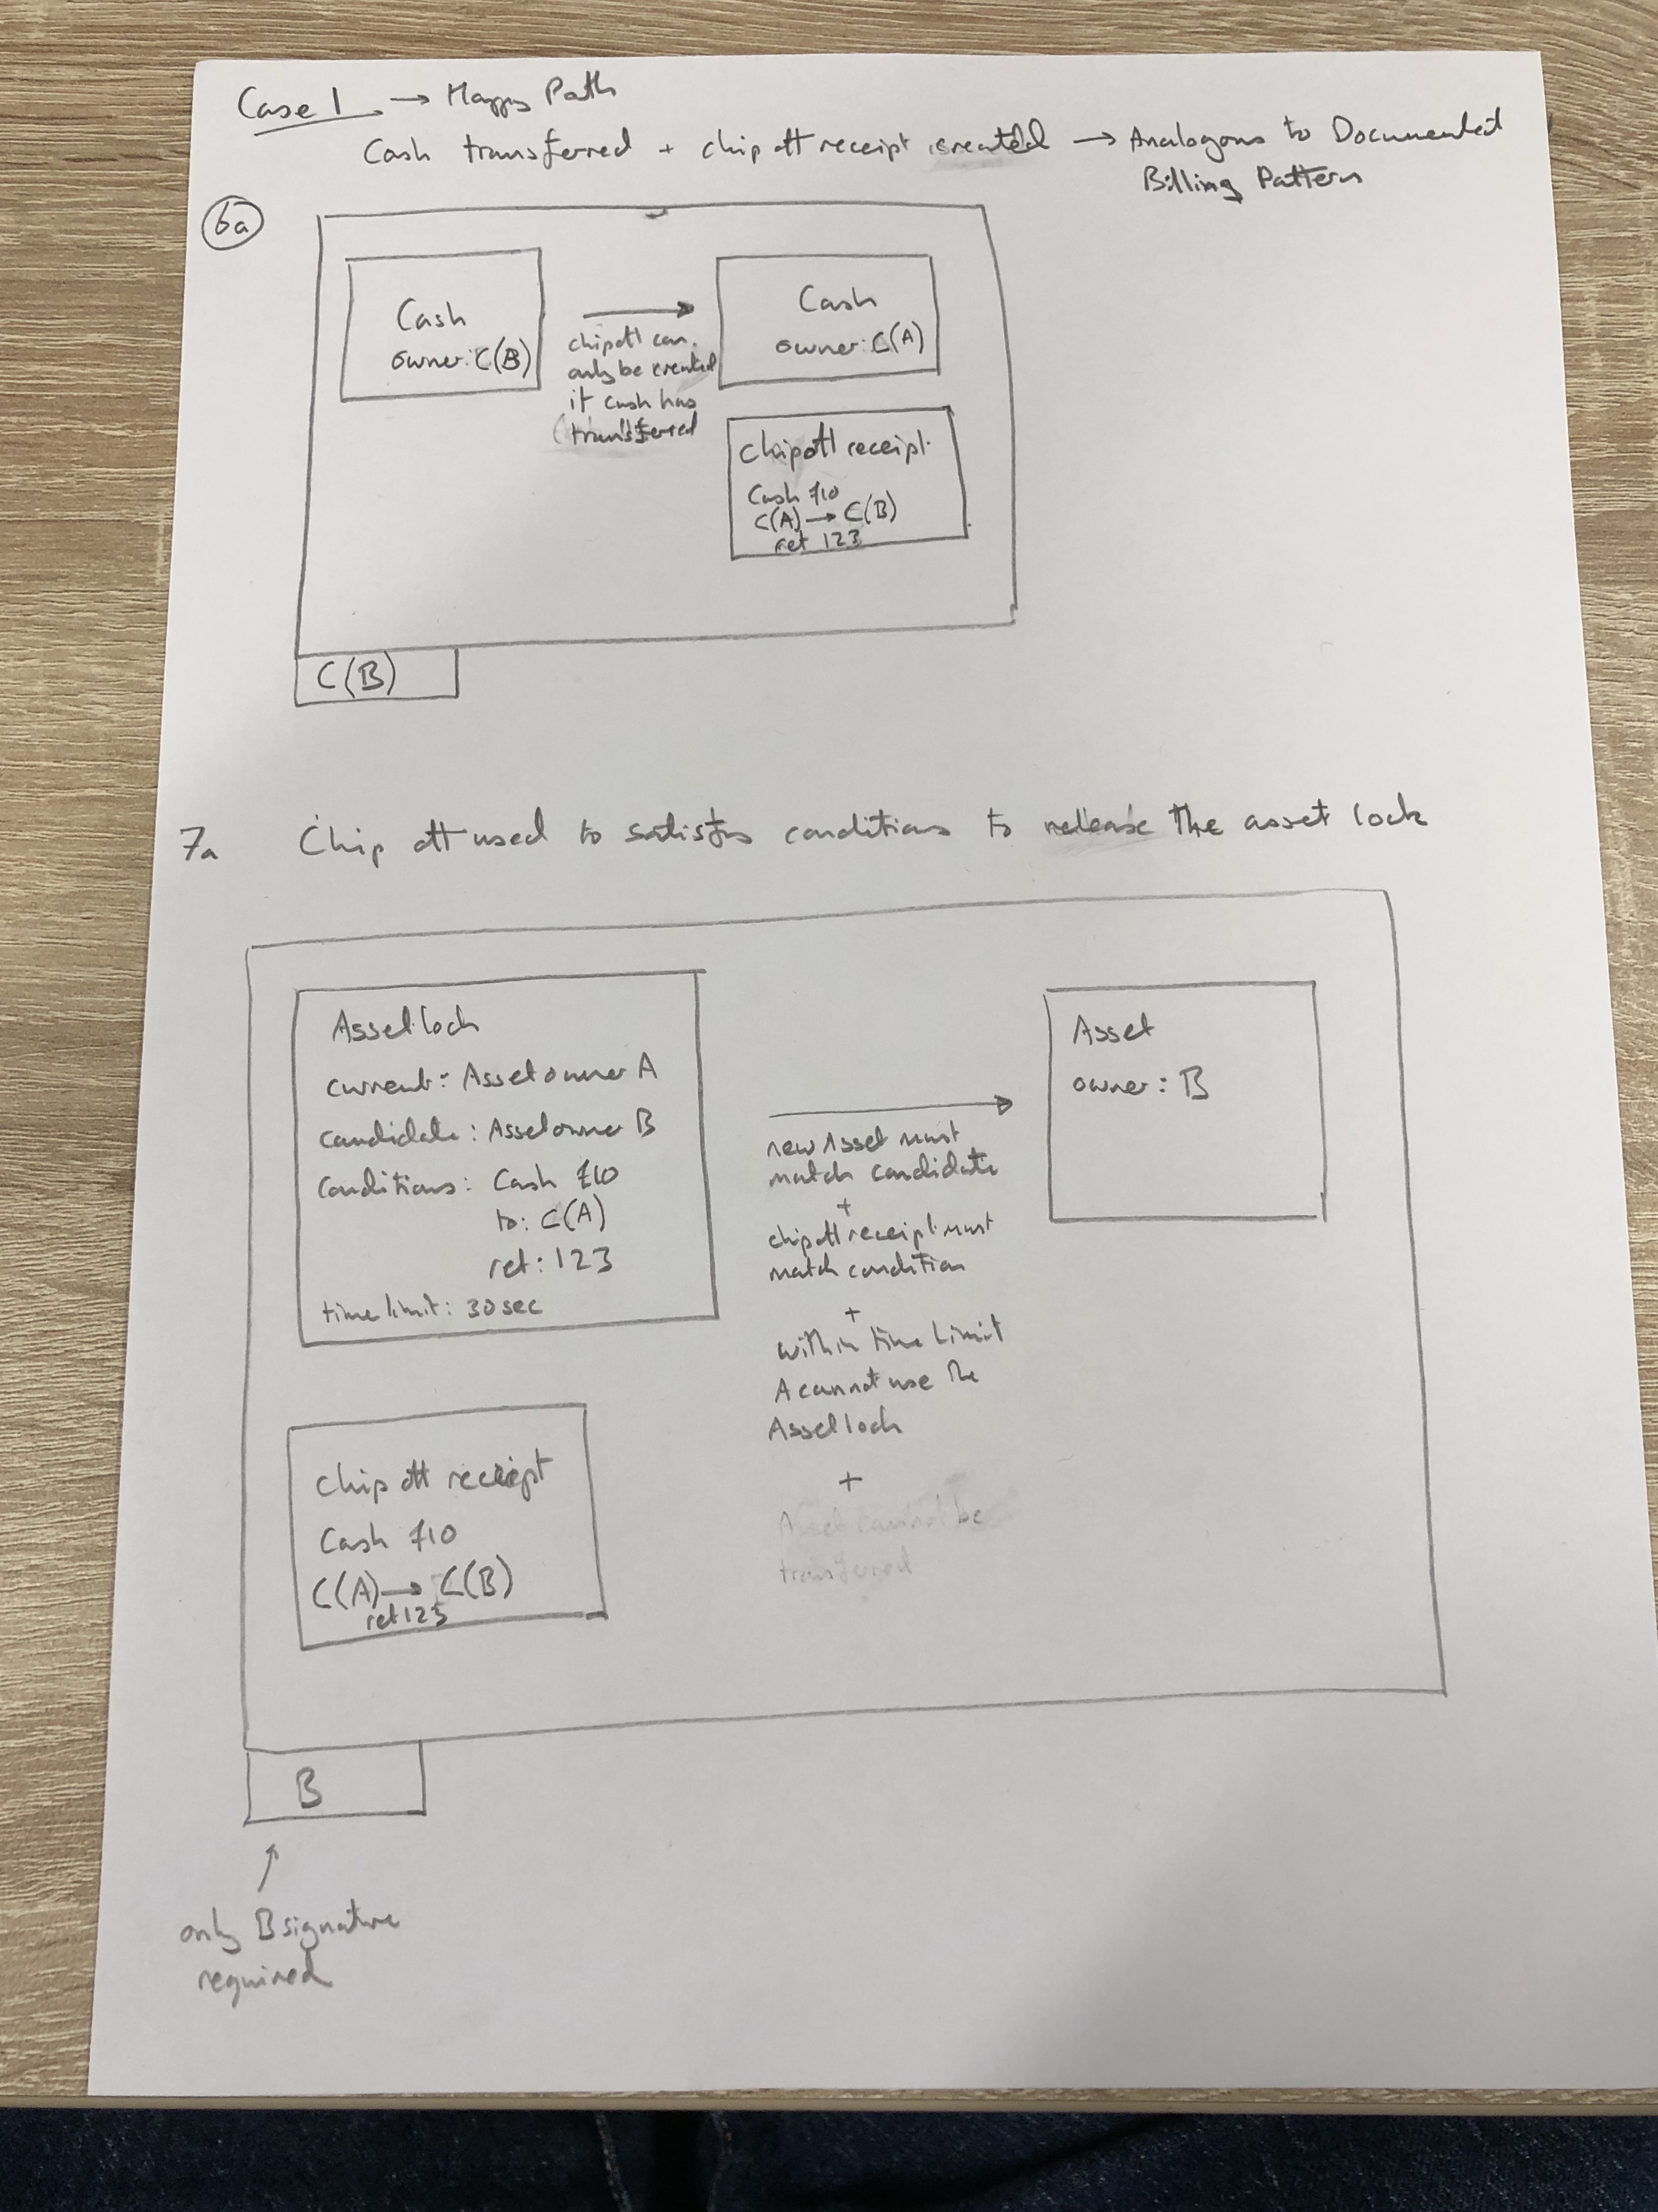 Case 1 → Happy Path
Cash transferred + chip off receipt is created → Analogous to Documented
Billing Pattern
6a
Cash
owner: C(B)
chipoff can
only be created
if cash has
transferred
Cash
owner: C(A)
chipoff receipt
Cash £10
C(A) → C(B)
ref 123
C(B)
7a Chip off used to satisfy conditions to release the asset lock
Asset lock
current: Asset owner A
candidate: Asset owner B
Conditions: Cash £10
to: C(A)
ref: 123
time limit: 30 sec
new Asset must
match candidate
+
chipoff receipt must
match condition
+
within time limit
A cannot use the
Asset lock
+
Asset cannot be
transferred
Asset
owner: B
chip off receipt
Cash £10
C(A) → C(B)
ref 123
B
↑
only B signature
required